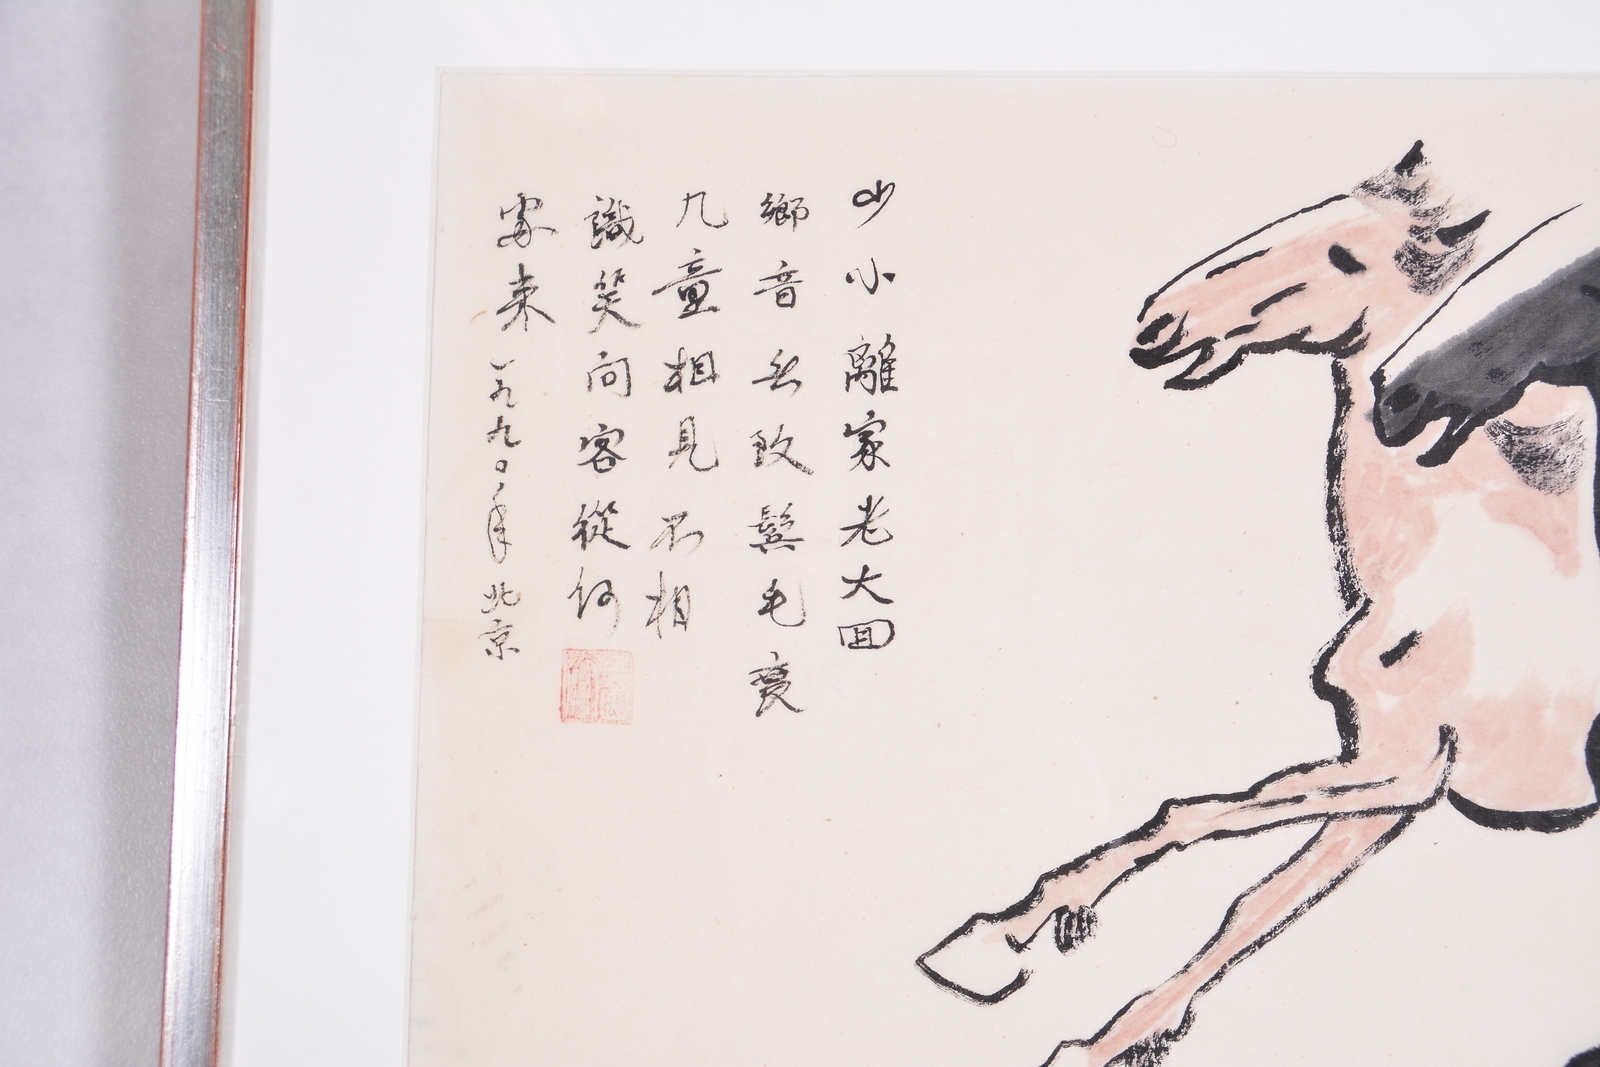 少小離家老大回
鄉音無改鬢毛衰
兒童相見不相
識笑問客從何
處來 一九九〇年 北京